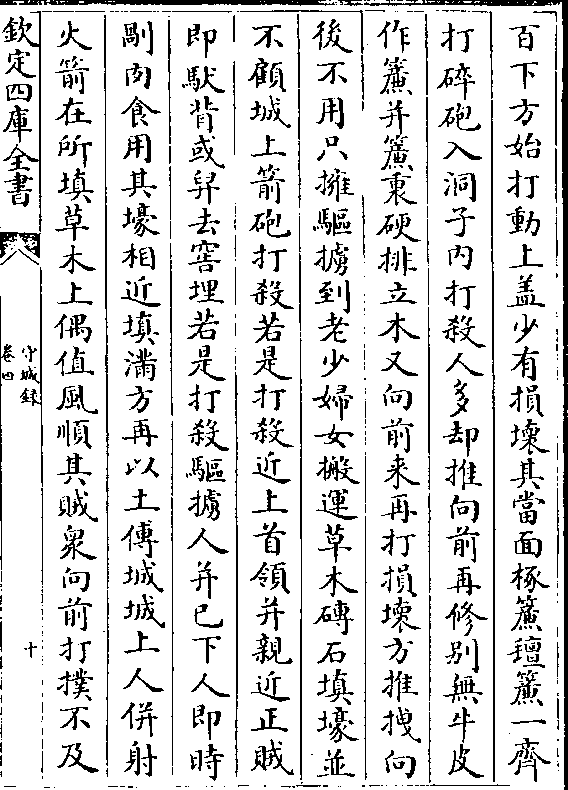 百下方始打動上盖少有損壞其當面椓簾氊簾一齊
打碎砲入洞子内打殺人多却推向前再修别無牛皮
作簾并簾裏硬排立木又向前来再打損壞方推拽向
後不用只擁驅擄到老少婦女搬運草木磚石填壕並
不顧城上箭砲打殺若是打殺近上首領并親近正賊
即馱背或舁去窖埋若是打殺驅擄人并已下人即時
剮肉食用其壕相近填滿方再以土傅城城上人併射
火箭在所填草木上偶值風順其賊衆向前打撲不及
欽定四庫全書
守城録
卷四
十